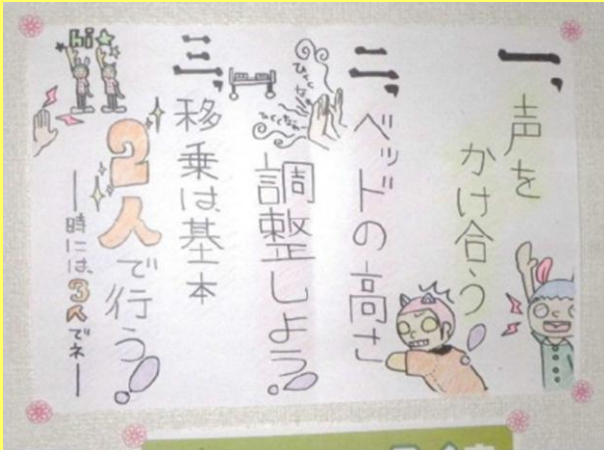 一、声を
かけ合う!
二、ベッドの高さ
調整しよう!
三、移乗は基本
2人で行う!
―時には、3人でネ―
hi☆